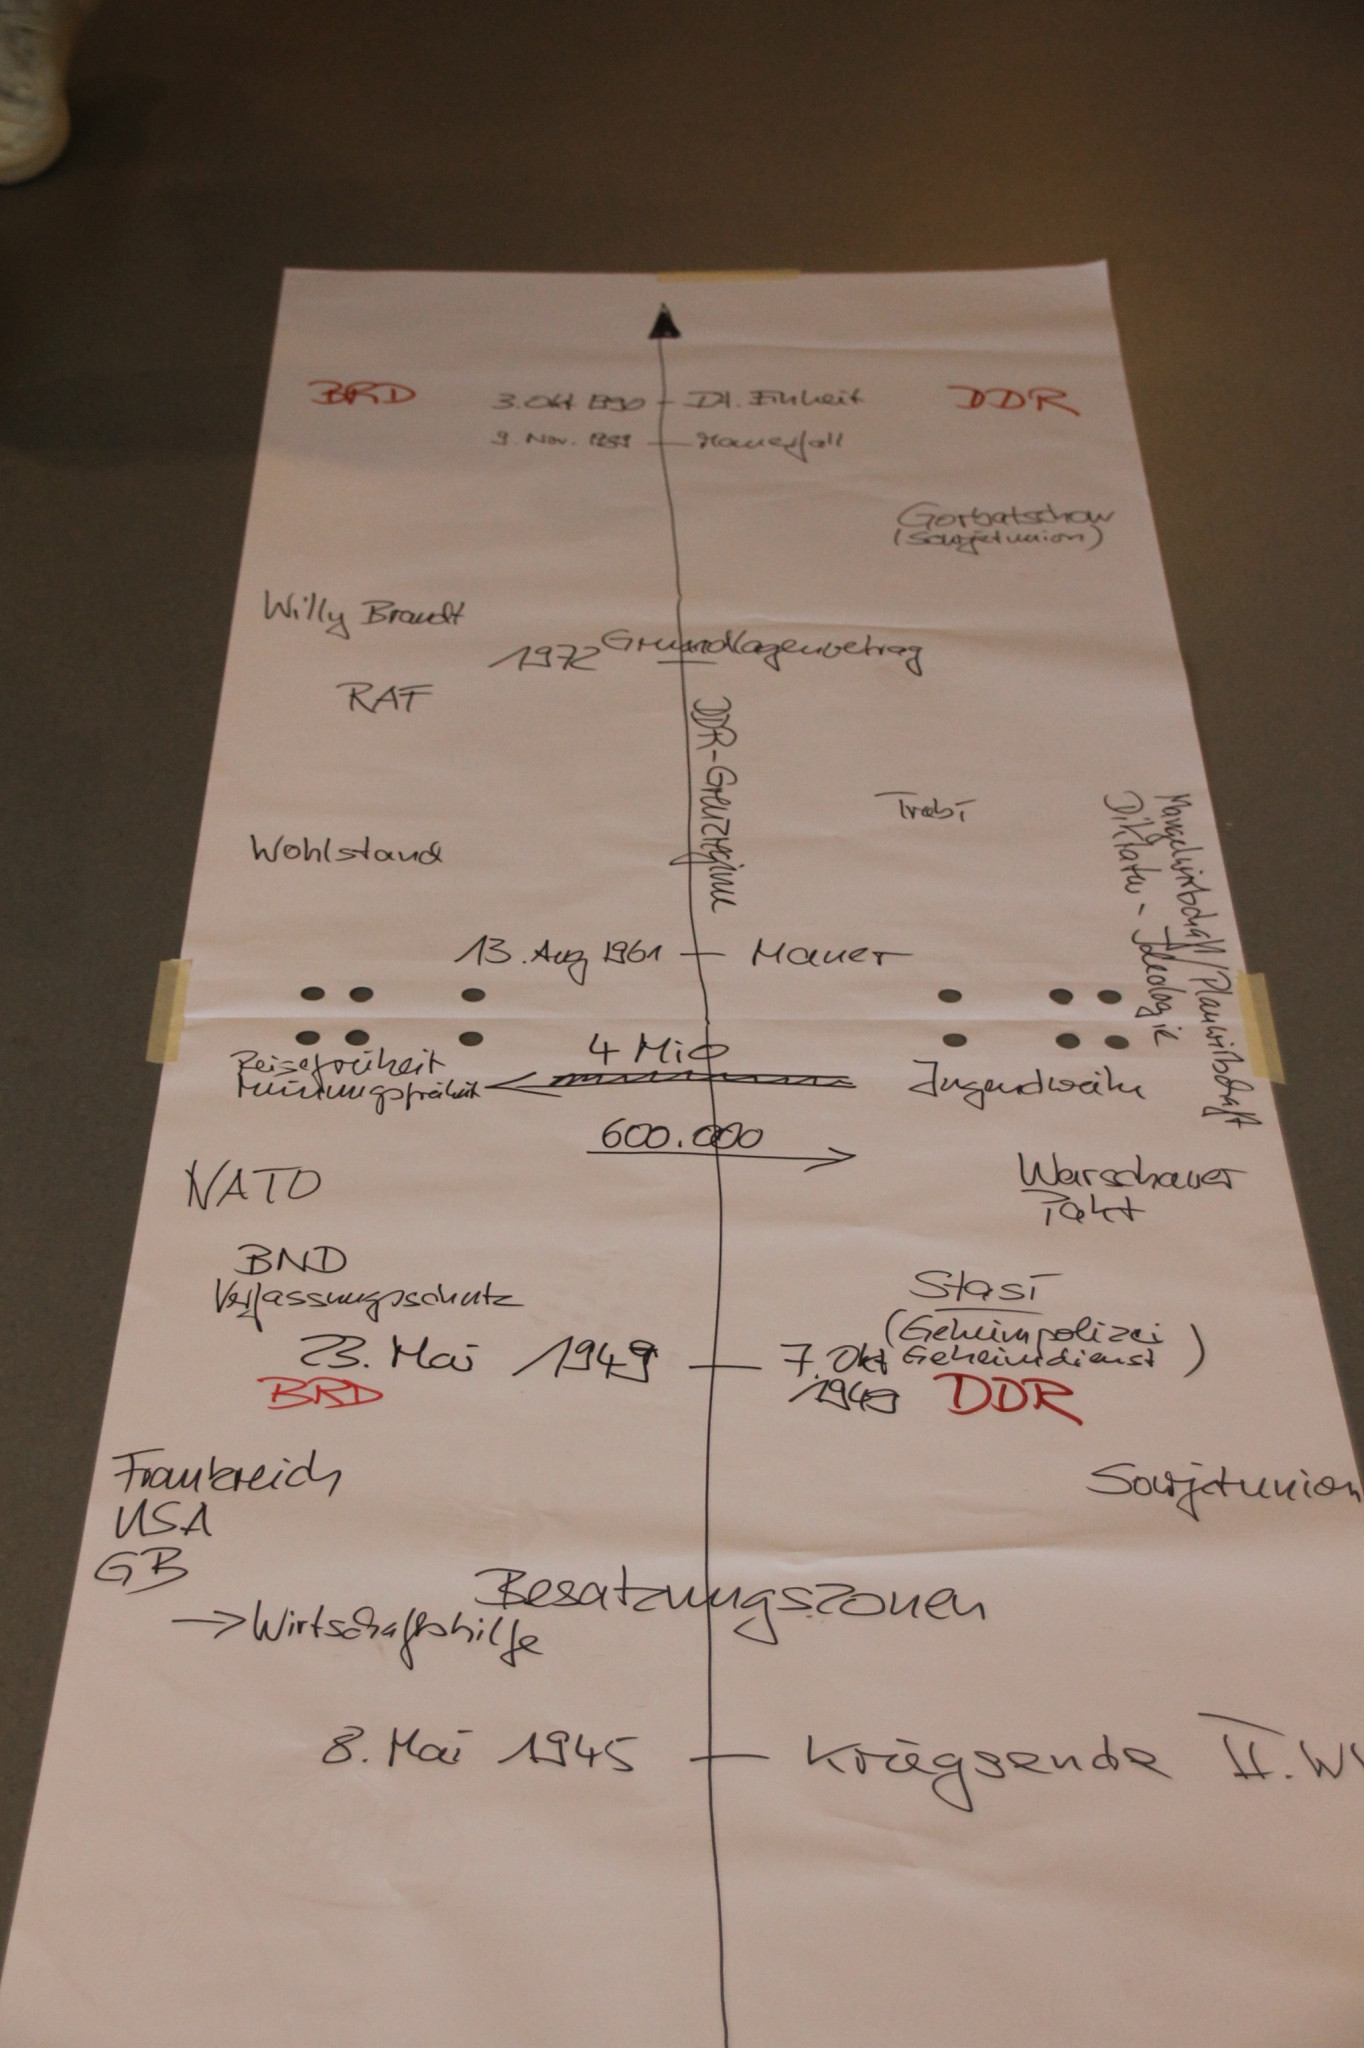 BRD
3. Okt 1990 Dt. Einheit
DDR
9. Nov. 1989 Mauerfall
Gorbatschow
(Sowjetunion)
Willy Brandt
1972 Grundlagenvetrag
RAF
DDR-Grenzregime
Trabi
Mangelwirtschaft/Planwirtschaft
Diktatur - Ideologie
Wohlstand
13. Aug 1961 Mauer
Reisefreiheit
Meinungsfreiheit
4 Mio
Jugendweihe
600.000
NATO
Warschauer
Pakt
BND
Verfassungsschutz
Stasi
(Geheimpolizei
Geheimdienst)
23. Mai 1949
7. Okt
1949
BRD
DDR
Frankreich
USA
GB
Sowjetunion
Besatzungszonen
→ Wirtschaftshilfe
8. Mai 1945 Kriegsende II. W